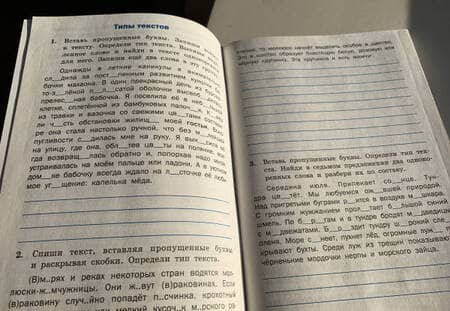 Типы текстов
1. Вставь пропущенные буквы. Запиши
к тексту. Определи тип текста.
ленное слово и найди в тексте
для него. Запиши ещё два слова в эту
Однажды в летние каникулы я внимател
сл__дила за пост__пенным развитием кук
бочки махаона. В один прекрасный день из
то-з__лёной п__л__сатой оболочки высвоб
прелес__ная бабочка. Я поселила её в неб
клетке, сплетённой из бамбуковых палоч
из травки и вазочка со свежими цв__тами
ли ч__сть обстановки жилищ__ моей гостьи.
ре она стала настолько ручной, что без м
пугливости с__дилась мне на руку. Я вын
на улицу, где она, обл__тев цв__ты на
гда возвращ__лась обратно и, попорхав надо
устраивалась на моём пальце или ладони. А в
дом__ке бабочку всегда ждало на л__сточке её люби
мое уг__щение: капелька мёда.
2. Спиши текст, вставляя пропущенные буквы
и раскрывая скобки. Определи тип текста.
(В)м..рях и реках некоторых стран водятся мол
люски-ж..мчужницы. Они ж..вут (в)раковинах. Если
(в)раковину случ..йно попадёт п..счинка, крохотный
или мелкий кусоч..к м..рского ра
3. Вставь пропущенные буквы. Определи тип тек-
ста. Найди в седьмом предложении два одноко-
ренных слова и разбери их по составу.
Середина июля. Припекает со__це. Тун-
дра цв__тёт. Мы любуемся ож__вшей природой.
Над пригретыми буграми р__ится в воздухе м__шкара.
С громким жужжанием прол__тает б__льшой синий
шмель. По б__грам и в тундре бродят м__дведицы
с м__двежатами. Б__р__здит тундру ш__рокий сле__
оленя. Море с__неет, пухнет лёд, огромные луж__
крывают бухты. Среди луж из трещин показываю
чёрненькие мордочки нерпы и морского зайца.